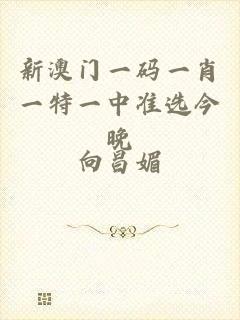 新澳门一码一肖
一特一中准选今
晚
向昌媚